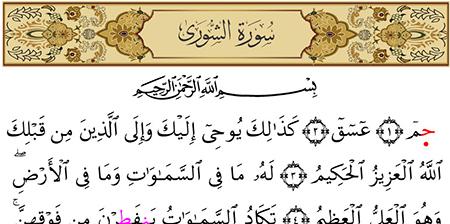 سُورَةُ الشُّورَىٰ
بِسْمِ ٱللَّهِ ٱلرَّحْمَٰنِ ٱلرَّحِيمِ
جمٓ ﴿١﴾ عٓسٓقٓ ﴿٢﴾ كَذَٰلِكَ يُوحِىٓ إِلَيْكَ وَإِلَى ٱلَّذِينَ مِن قَبْلِكَ
ٱللَّهُ ٱلْعَزِيزُ ٱلْحَكِيمُ ﴿٣﴾ لَهُۥ مَا فِى ٱلسَّمَٰوَٰتِ وَمَا فِى ٱلْأَرْضِ ۖ
وَهُوَ ٱلْعَلِىُّ ٱلْعَظِيمُ ﴿٤﴾ تَكَادُ ٱلسَّمَٰوَٰتُ يَنفَطِرْنَ مِن فَوْقِهِنَّ ۚ